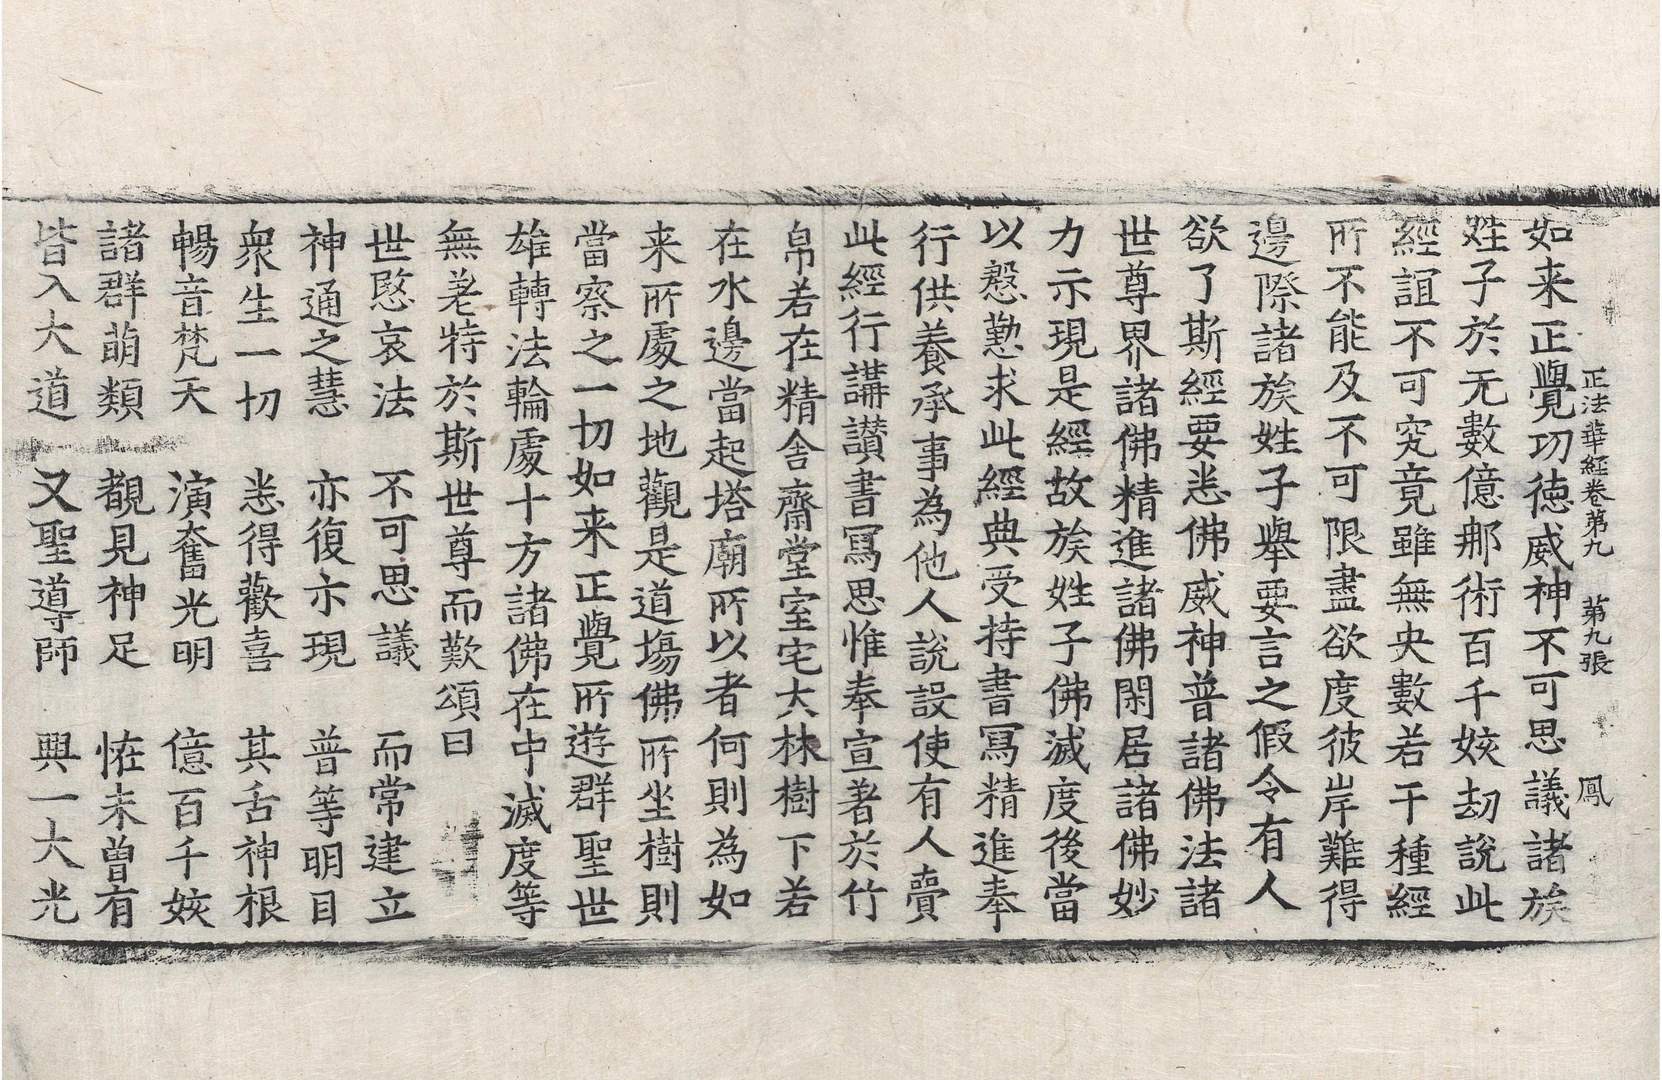 正法華經卷第九 第九張 鳳
如来正覺功徳威神不可思議諸族
姓子於无數億那術百千姟劫說此
經誼不可究竟雖無央數若干種經
所不能及不可限盡欲度彼岸難得
邊際諸族姓子舉要言之假令有人
欲了斯經要悉佛威神普諸佛法諸
世尊界諸佛精進諸佛閑居諸佛妙
力示現是經故族姓子佛滅度後當
以慇懃求此經典受持書冩精進奉
行供養承事為他人說設使有人齎
此經行講讃書冩思惟奉宣著於竹
帛若在精舍齋堂室宅大林樹下若
在水邊當起塔廟所以者何則為如
来所處之地觀是道場佛所坐樹則
當察之一切如来正覺所遊群聖世
雄轉法輪處十方諸佛在中滅度等
無差特於斯世尊而歎頌曰
世愍哀法 不可思議 而常建立
神通之慧 亦復示現 普等明目
衆生一切 悉得歡喜 其舌神根
暢音梵天 演奮光明 億百千姟
諸群萌類 覩見神足 恠未曽有
皆入大道 又聖導師 興一大光